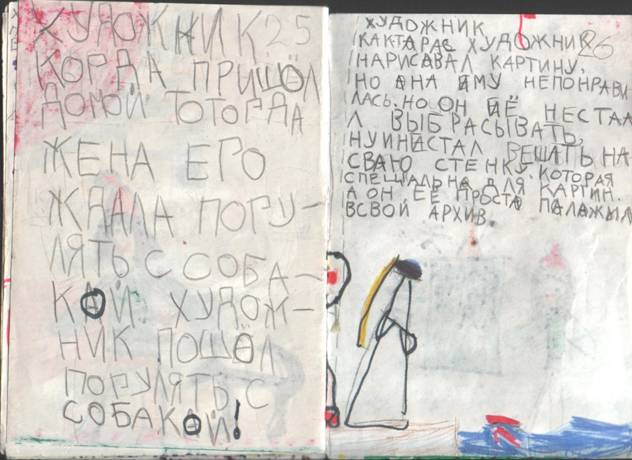 ХУДОЖНИК 25
КОРДА ПРИШОЛ
ДОМОЙ ТОТОРДА
ЖЕНА ЕРО
ЖДАЛА ПОРУ-
ЛЯТЬ С СОБА-
КОЙ. ХУДОЖ-
НИК ПОШОЛ
ПОРУЛЯТЬ С
СОБАКОЙ!
ХУДОЖНИК
КАКТАРАС ХУДОЖНИК 26
НАРИСАВАЛ КАРТИНУ,
НО АНА ИМУ НЕПОНРАВИ
ЛАСЬ. НО ОН ИЁ НЕСТАА
Л ВЫБРАСЫВАТЬ,
НУИНИСТАЛ ВЕШАТЬ НА
СВАЮ СТЕНКУ. КОТОРАЯ
СПЕЦИАЛЬНА ДЛЯ КАРТИН.
А ОН ЕЁ ПРОСТА ПАЛАЖЫЛ
ВСВОЙ АРХИВ.